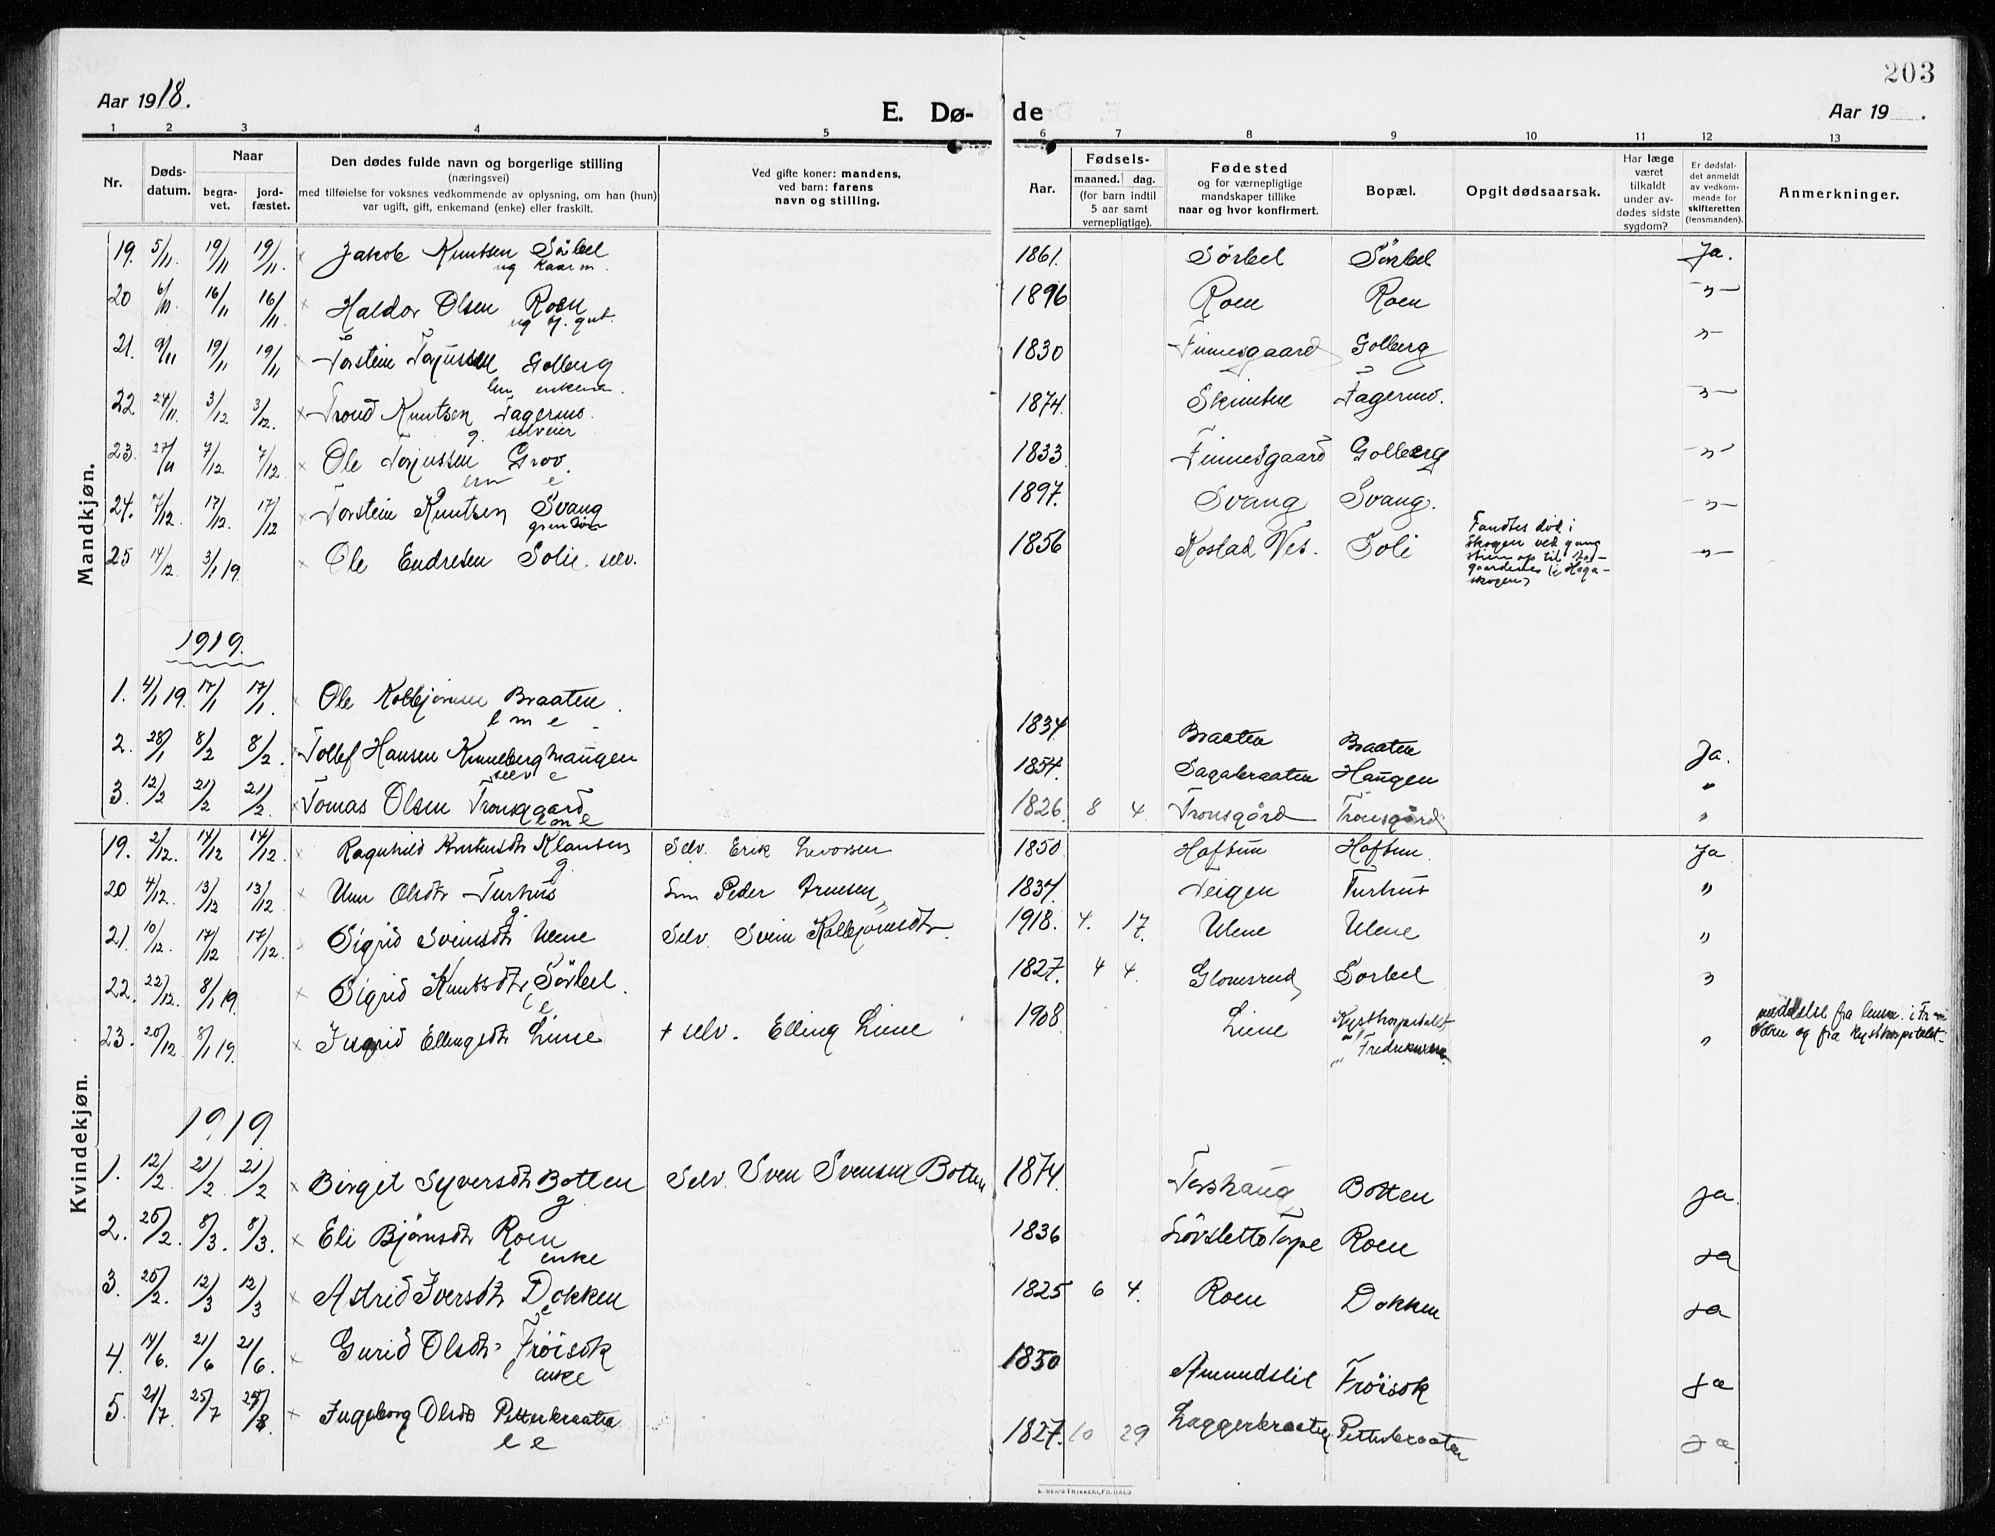 203
Aar 1918.
E. Dø-
de
Aar 19 .
1 2 3 4 5 6 7 8 9 10 11 12 13
Nr.
Døds-
datum.
Naar
begra-
vet.
jord-
fæstet.
Den dødes fulde navn og borgerlige stilling
(næringsvei)
med tilføielse for voksnes vedkommende av oplysning, om han (hun)
var ugift, gift, enkemand (enke) eller fraskilt.
Ved gifte koner: mandens,
ved barn: farens
navn og stilling.
Aar.
Fødsels-
maaned. dag.
(for barn indtil
5 aar samt
vernepligtige).
Fødested
og for værnepligtige
mandskaper tillike
naar og hvor konfirmert.
Bopæl.
Opgit dødsaarsak.
Har læge
været
tilkaldt
under av-
dødes sidste
sygdom?
Er dødsfal-
det anmeldt
av vedkom-
mende for
skifteretten
(lensmanden).
Anmerkninger.
Mandkjøn.
19. 5/11. 19/11 19/11. × Jakob Knutsen Sörbel 1861. Sørbel Sörbel Ja.
ug
20 6/11 16/11 16/11 × Haldor Olsen Roen 1896 Roen Roen -"-
ug g. gut.
21. 9/11 19/11 19/11 × Torstein Torjussen Golberg 1830 Finnesgaard Golberg "-
22 24/11. 3/12 3/12. × Trond Knutsen Fagermo. 1874. Fagermo. -"-
g. selveier
23. 27/11 7/12 7/12 × Ole Torjussen Grov. 1833 Finnesgaard Golberg -"-
e
24. 7/12. 17/12. 17/12 × Torstein Knutsen Svang 1897. Svang Svang. -"-
25 14/12 3/1 19. × Ole Endresen Solie selv. 1856 Soli Fandtes död i -"-
skogen ved gang
skogen)
1919.
1. 4/1 19. 17/1 17/1. × Ole Kolbjørnsen Braaten. 1834 Braaten Braaten
l m e
2. 28/1 8/2 8/2. × Tollef Hansen Haugen 1854. Sagabraaten Haugen Ja.
selv e
3. 12/2 21/2 21/2. × Tomas Olsen Tronsgaard 1826. 8 4. Tronsgård Tronsgård "
Kvindekjøn.
19. 2/12. 14/12 14/12. × Ragnhild Klansen Selv. Erik Levorsen 1850 Haftun Haftun. Ja
g
20 4/12. 13/12 13/12 × Unn Olsdtr Turhus Peder 1834. Teigen Turhus "
g.
21. 10/12. 17/12 17/12. × Sigrid Svensdtr Ulene Selv. Svein 1918. 4. 17. Ulene Ulene "
22. 22/12. 8/1 19. × Sigrid Knutsdtr Sörbel. 1827. 4 4. Glomsrud Sorbel "
23. 20/12. 8/1 19. × Ingrid Ellingsdtr Liene + selv. Elling Liene 1908. Liene Kysthospitalet "
Fredriksværn.
meddelse fra lensm. i
og fra kysthospitalet.
1919
1. 12/2 21/2 21/2 × Birgit Syversdtr Botten Selv. Sven Svensen Botten 1874. Botten ja.
g
2. 20/2. 8/3. 8/3. × Eli Bjørnsdtr Roen 1836 Torpe Roen ja
l enke
3. 20/2. 12/3 12/3 × Astrid Iversdtr Dokken 1825 6 4. Roen Dokken ja
e
4. 14/6. 21/6 21/6. × Gurid Olsdtr Frøisok 1850 Amundslie Frøisok ja
enke
5. 21/7. 25/7 × Ingeborg Olsdtr Petterbraaten 1827. 10 29 Petterbraaten ja
l e